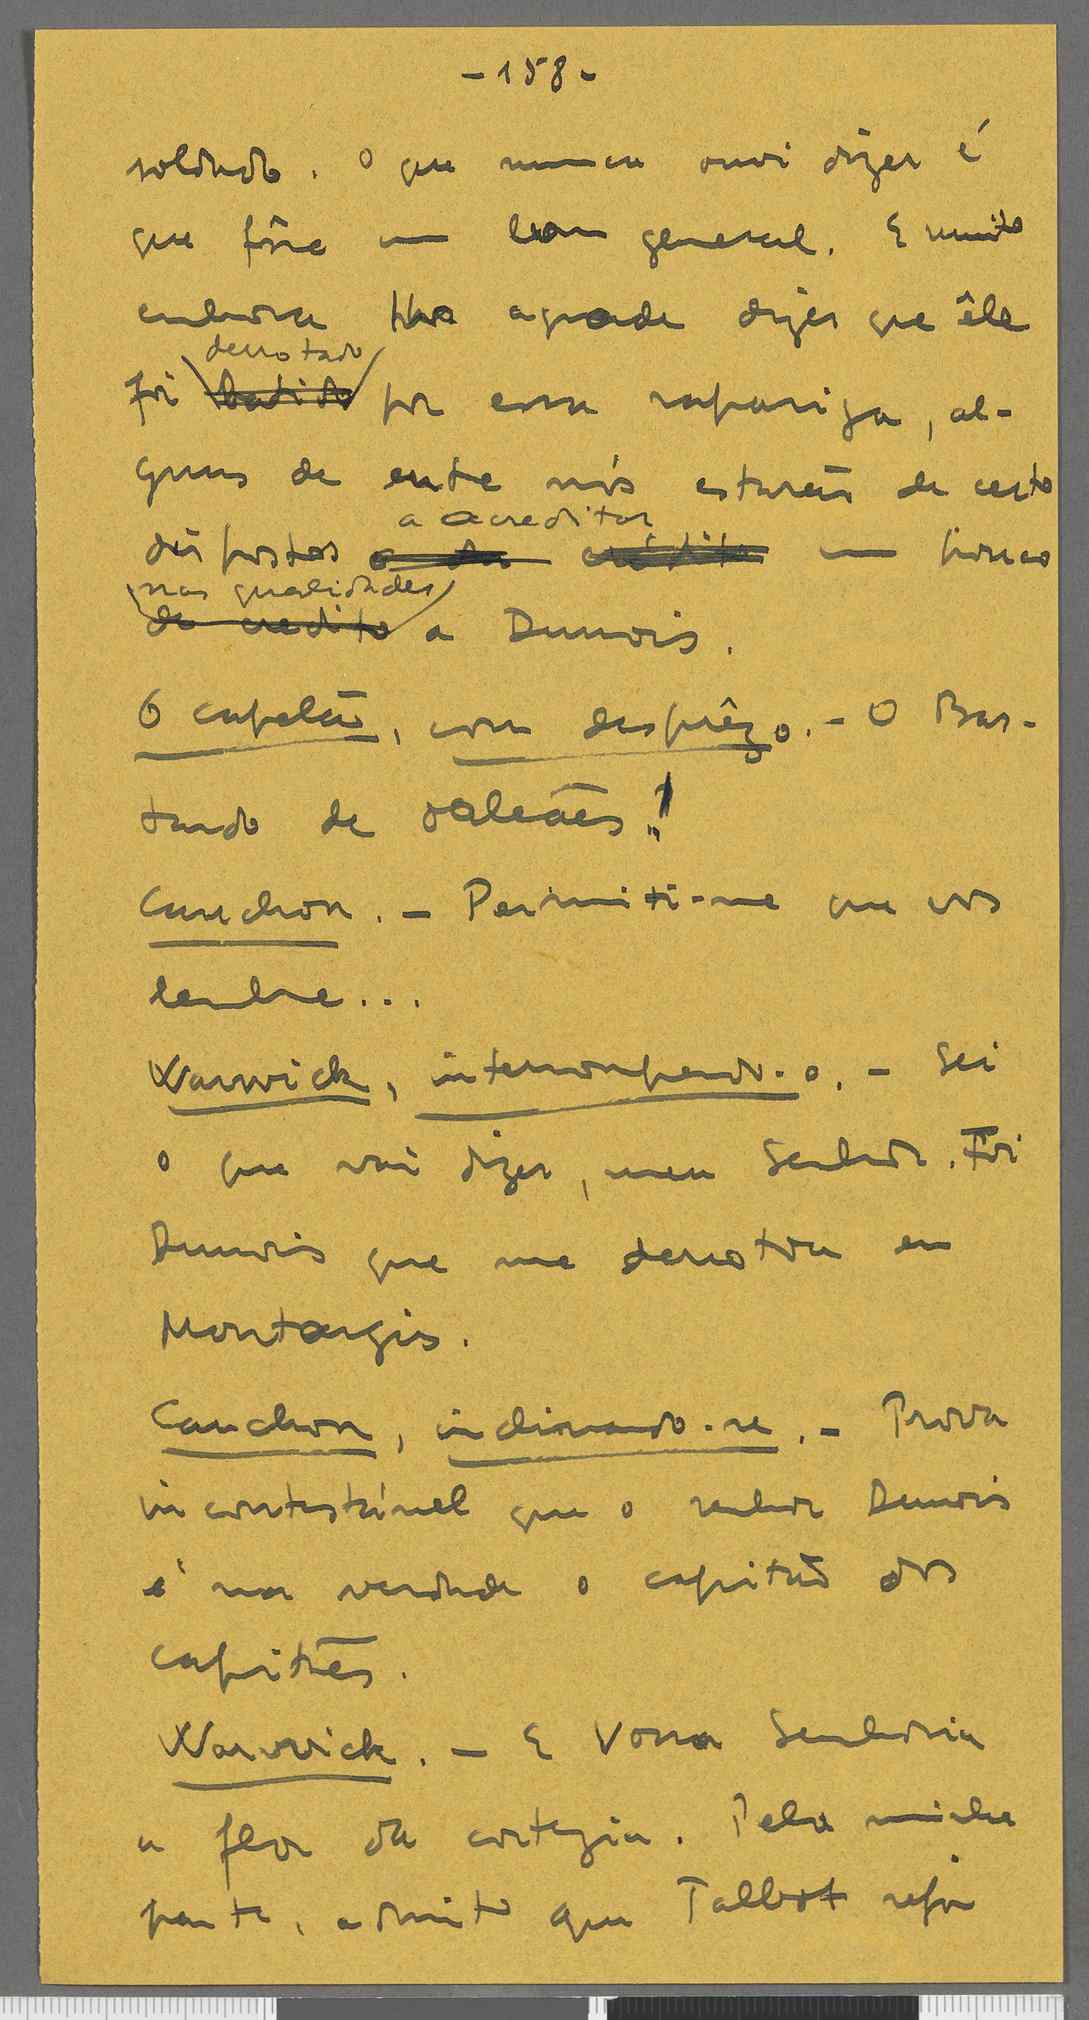 - 158 -
soldado. O que nunca ouvi dizer é
que fôsse um bom general. E muito
embora lhe agrade dizer que êle
derrotado
foi batido por essa rapariga, al-
guns de entre nós estarão de certo
a acreditar
dispostos a dar crédito um pouco
nas qualidades
de credito a Dunois.
O capelão, com desprêzo. - O Bas-
tardo de Orleães!
Cauchon. - Permiti-me que vos
lembre...
Warwick, interrompendo-o. - Sei
o que vai dizer, meu Senhor. Foi
Dunois que me derrotou em
Montargis.
Cauchon, inclinando-se. - Prova
incontestável que o senhor Dunois
é na verdade o capitão dos
capitães.
Warwick. - E Vossa Senhoria
a flor da cortezia. Pela minha
parte, admito que Talbot seja